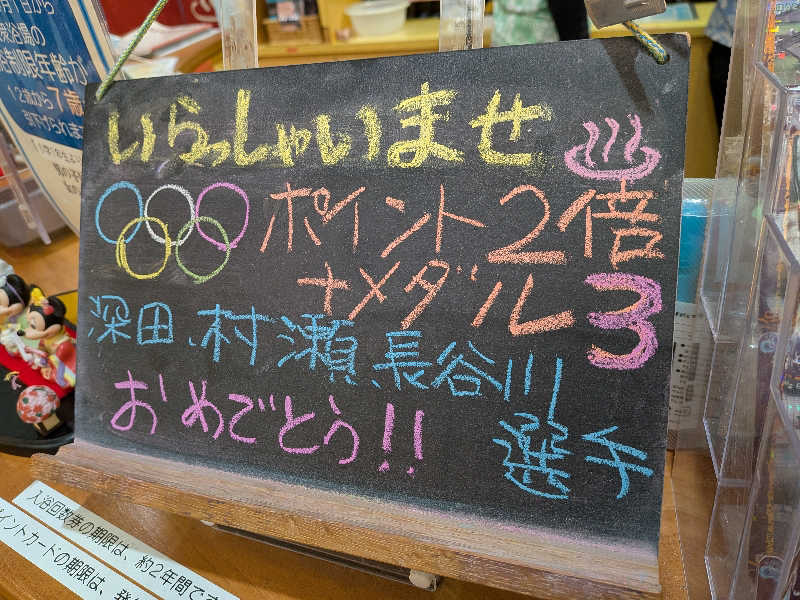 いらっしゃいませ
ポイント2倍
+メダル3
深田、村瀬、長谷川
選手
おめでとう!!
12歳から7歳
入浴回数券の期限は、約2年間です
ポイントカードの期限は、発